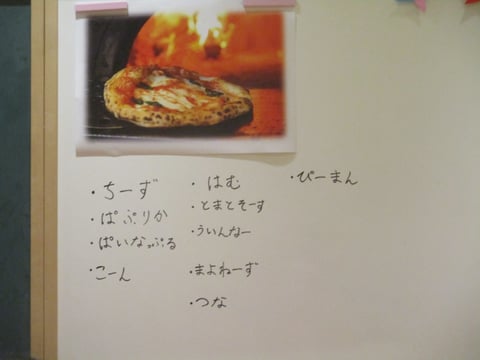 ・ちーず
・ぱぷりか
・ぱいなっぷる
・こーん
・はむ
・とまとそーす
・ういんなー
・まよねーず
・つな
・ぴーまん